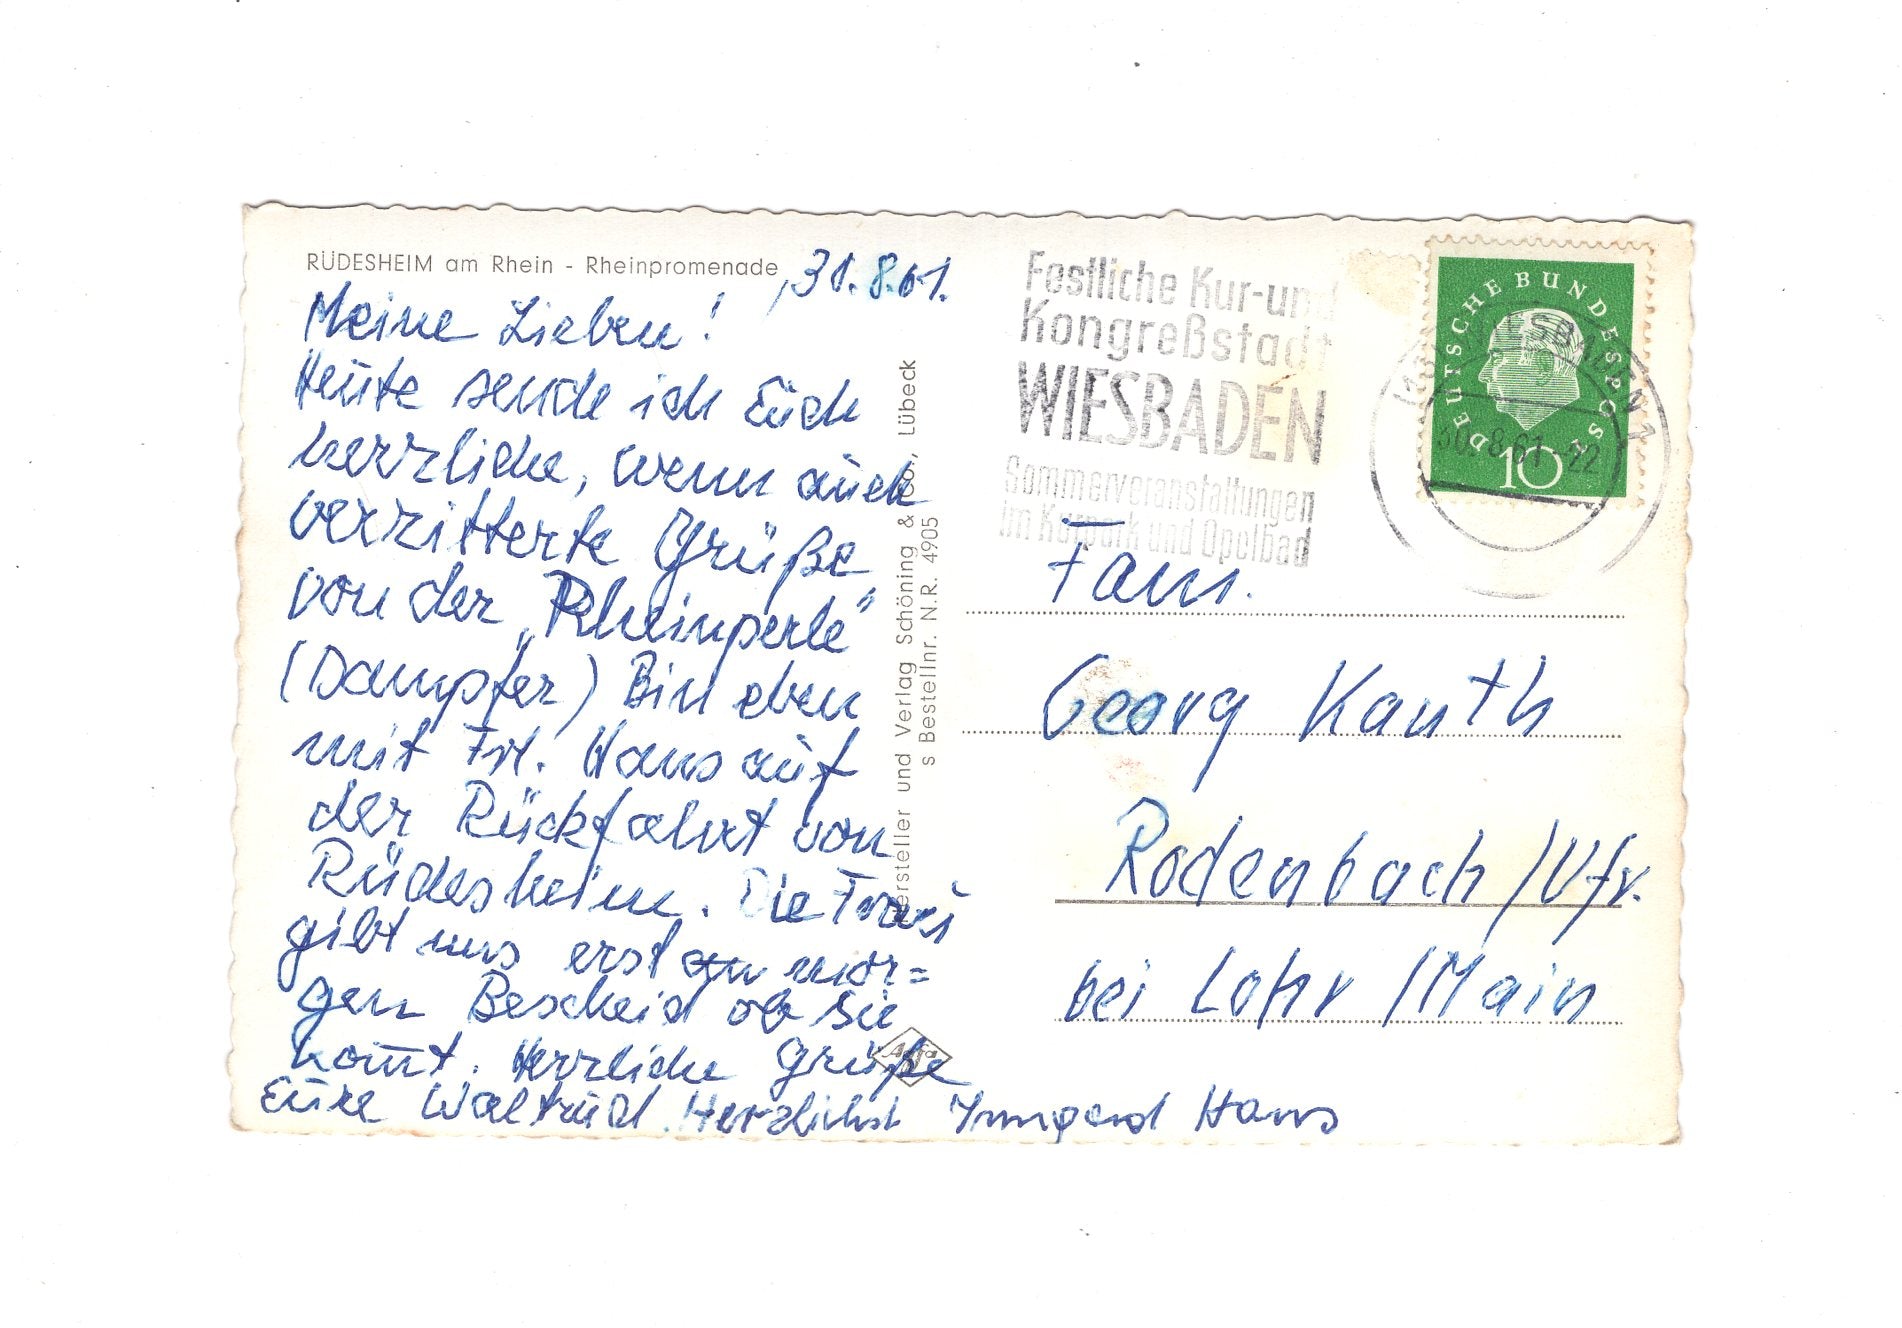 RÜDESHEIM am Rhein - Rheinpromenade
, 30.8.61.
Meine Lieben!
Heute sende ich Euch
herzliche, wenn auch
verzitterte Grüße
von der „Rheinperle"
(Dampfer) Bin eben
mit Frl. Haus auf
der Rückfahrt von
Rüdesheim. Die Frau
gibt uns erst mor=
gen Bescheid ob sie
kom̄t. Herzliche Grüße
Eure Waltrud. Herzlichst Irmgard Haus
Hersteller und Verlag Schöning & Co., Lübeck
s Bestellnr. N.R. 4905
Agfa
Festliche Kur-und
Kongreßstadt
WIESBADEN
Sommerveranstaltungen
im Kurpark und Opelbad
DEUTSCHE BUNDESPOST
10
WIESBADEN 1
30.8.61-22
Fam.
Georg Kauth
Rodenbach/Ufr.
bei Lohr/Main